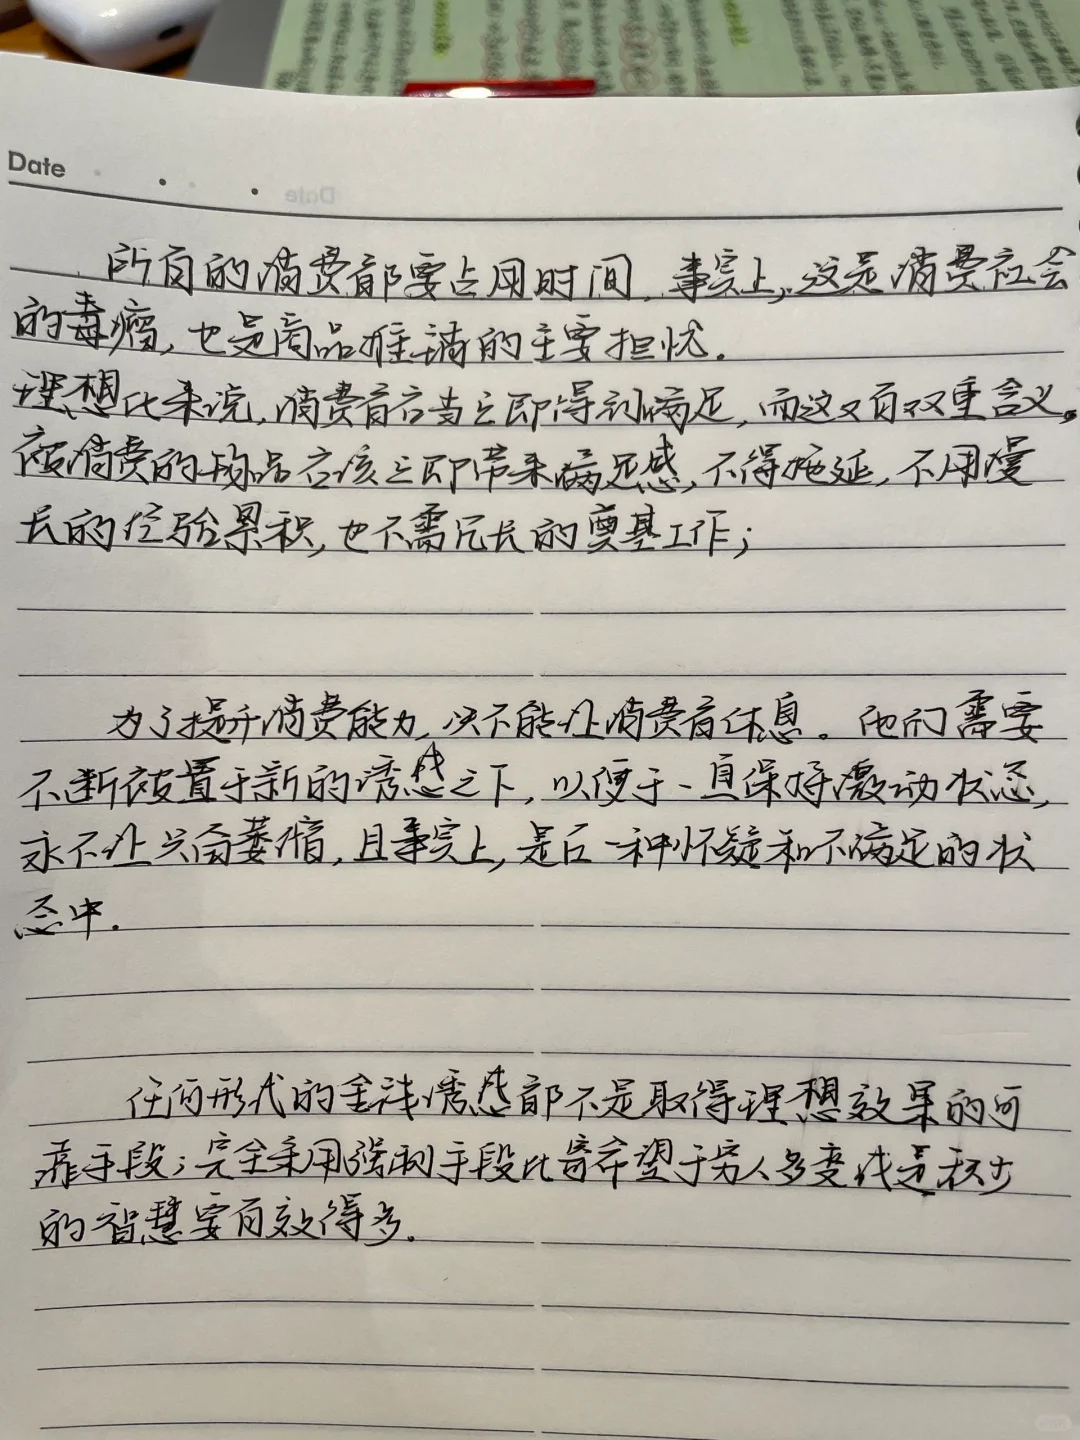 Date
所有的消费都要占用时间,事实上,这是消费社会
的毒瘤,也是商品推销的主要担忧.
理想化来说,消费者应当立即得到满足,而这又有双重含义。
被消费的物品应该立即带来满足感,不得拖延,不用漫
长的经验累积,也不需冗长的奠基工作;
为了提升消费能力,决不能让消费者休息。他们需要
不断被置于新的诱惑之下,以便于一直保持激动状态,
永不让兴奋萎缩,且事实上,是在一种怀疑和不满足的状
态中.
任何形式的金钱诱惑都不是取得理想效果的可
靠手段;完全采用强制手段比寄希望于穷人多变或是缺少
的智慧要有效得多.